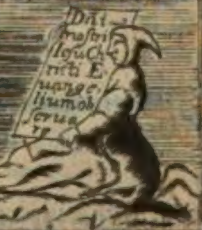 Dñi
nostri
Iesu Ch
risti E
uange
lium ob
serua
re